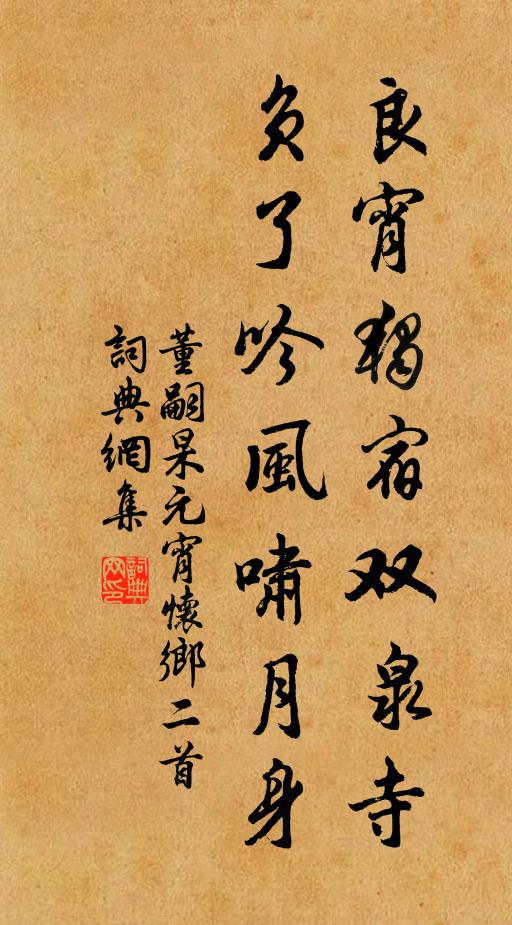 良宵独宿双泉寺
负了吟風啸月身
董嗣杲元宵懷鄉二首
詞典網集
詞典网印